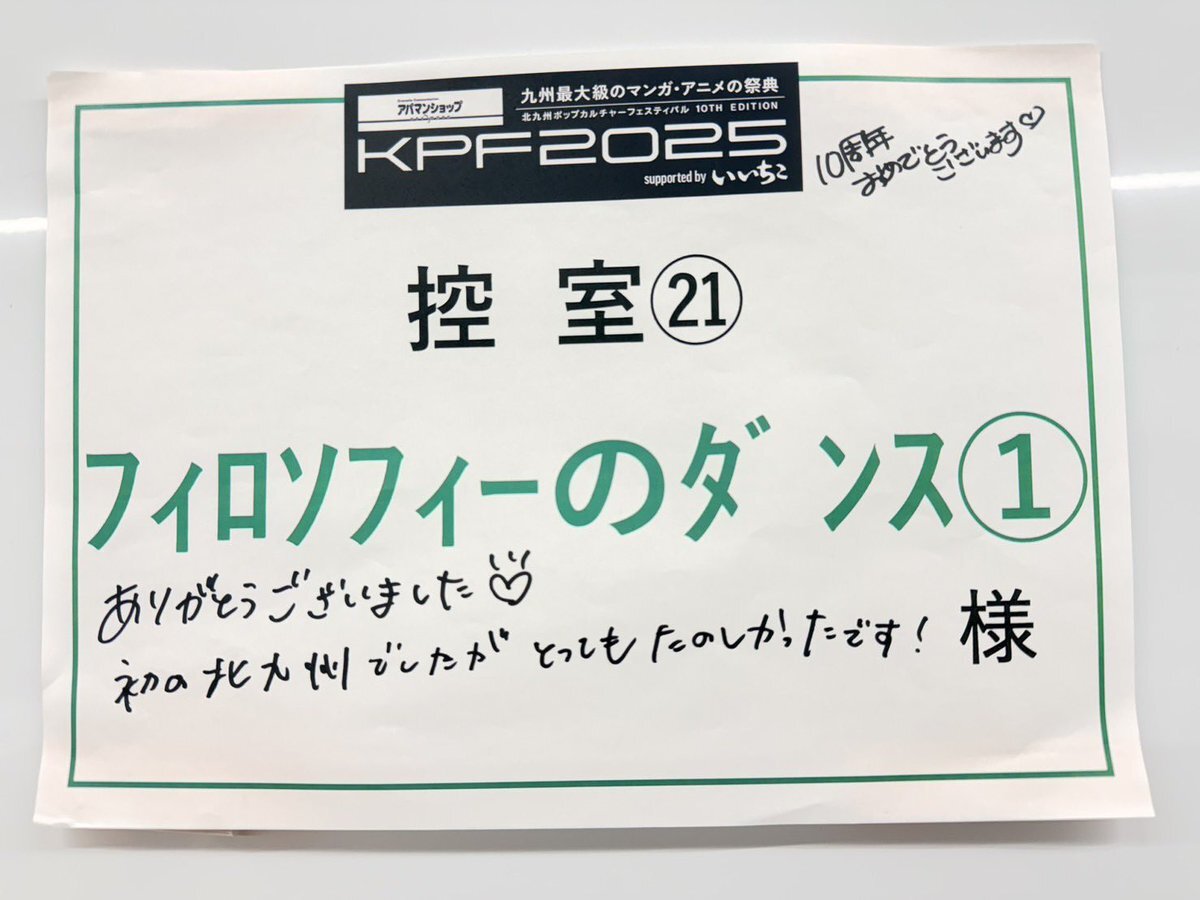 アパマンショップ
九州最大級のマンガ・アニメの祭典
北九州ポップカルチャーフェスティバル 10TH EDITION
KPF2025
supported by いいちこ
10周年
おめでとう
ございます♡
控 室㉑
フィロソフィーのダンス①
ありがとうございました♡
初の北九州でしたがとってもたのしかったです!
様